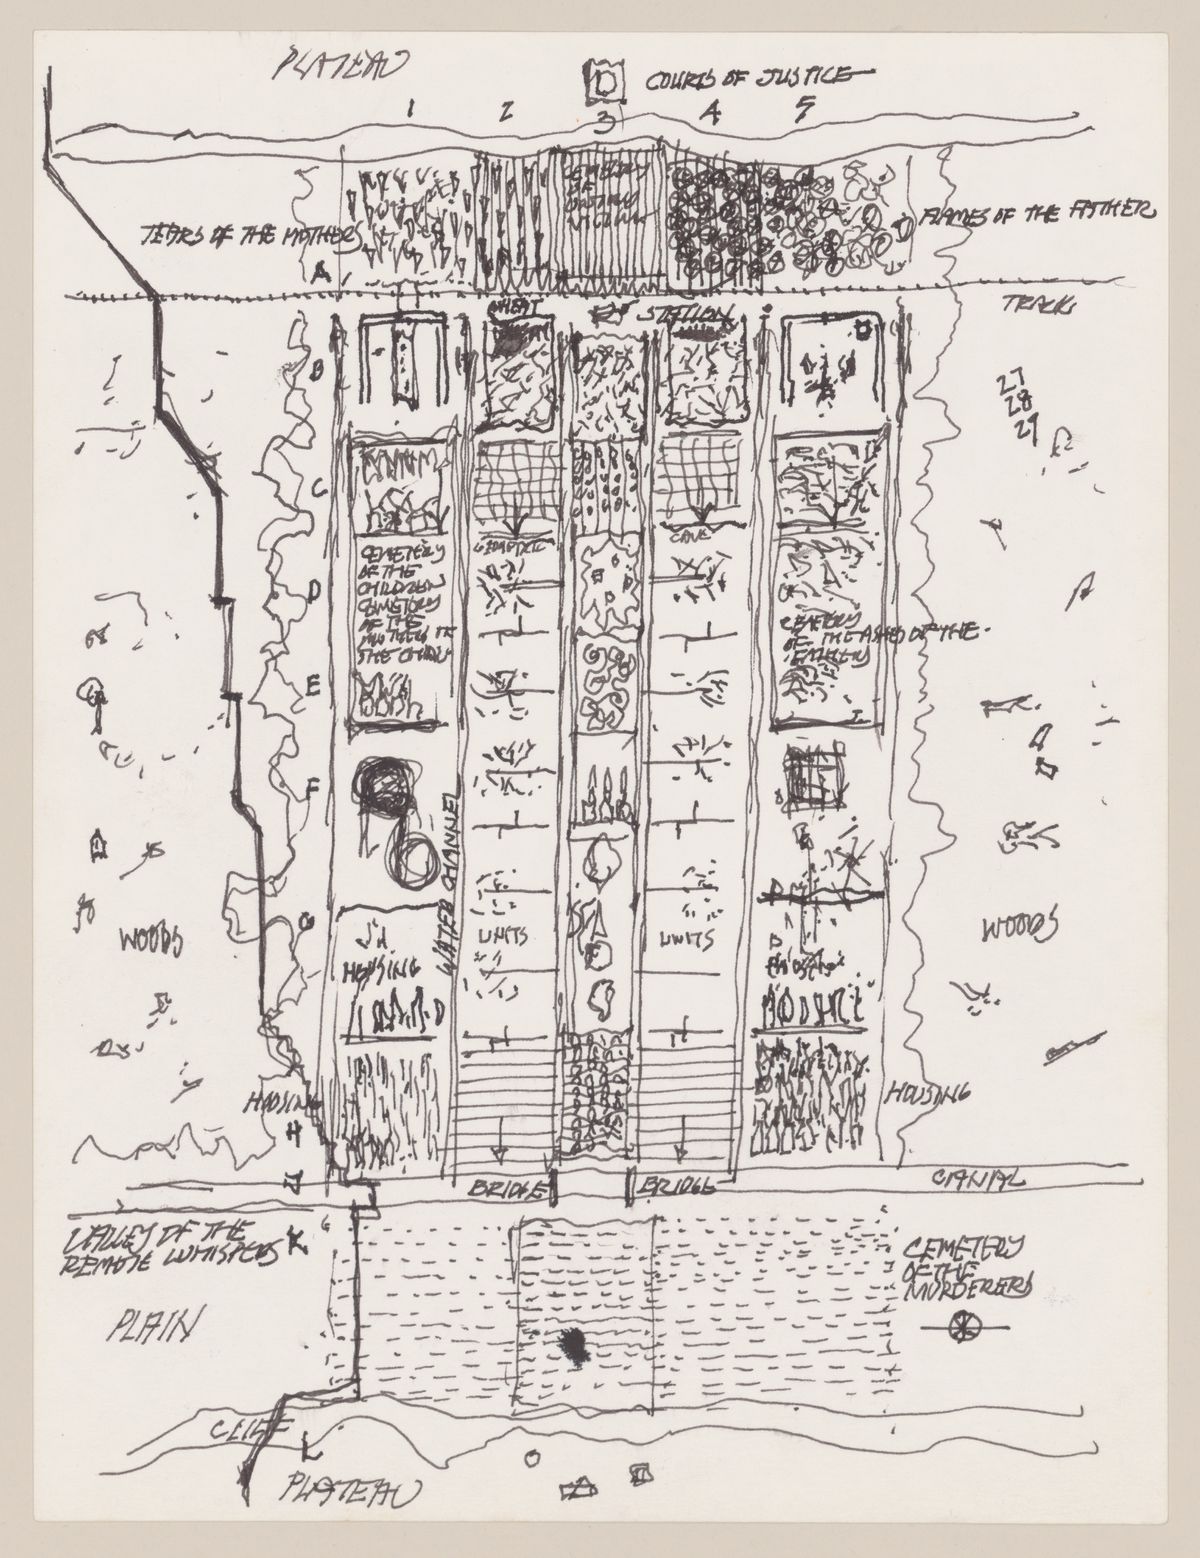 PLATEAU
COURTS OF JUSTICE
1 2 3 4 5
CEMETERY
OF
TEARS OF THE MOTHERS
FLAMES OF THE FATHER
A
STATION
TRACK
B
27
28
29
C
CAVE
D
CEMETERY
OF THE
CHILDREN
CEMETORY
OF THE
THE CHILD
CEMETERY
OF THE ASHES OF THE
FAMILY
E
F
WATER CHANNEL
G
WOODS
UNITS
UNITS
WOODS
HOUSING
HOUSING
HOUSING
H
BRIDGE
BRIDGE
CANAL
VALLEY OF THE
REMOTE
K
CEMETERY
OF THE
MURDERERS
PLAIN
CLIFF
L
PLATEAU